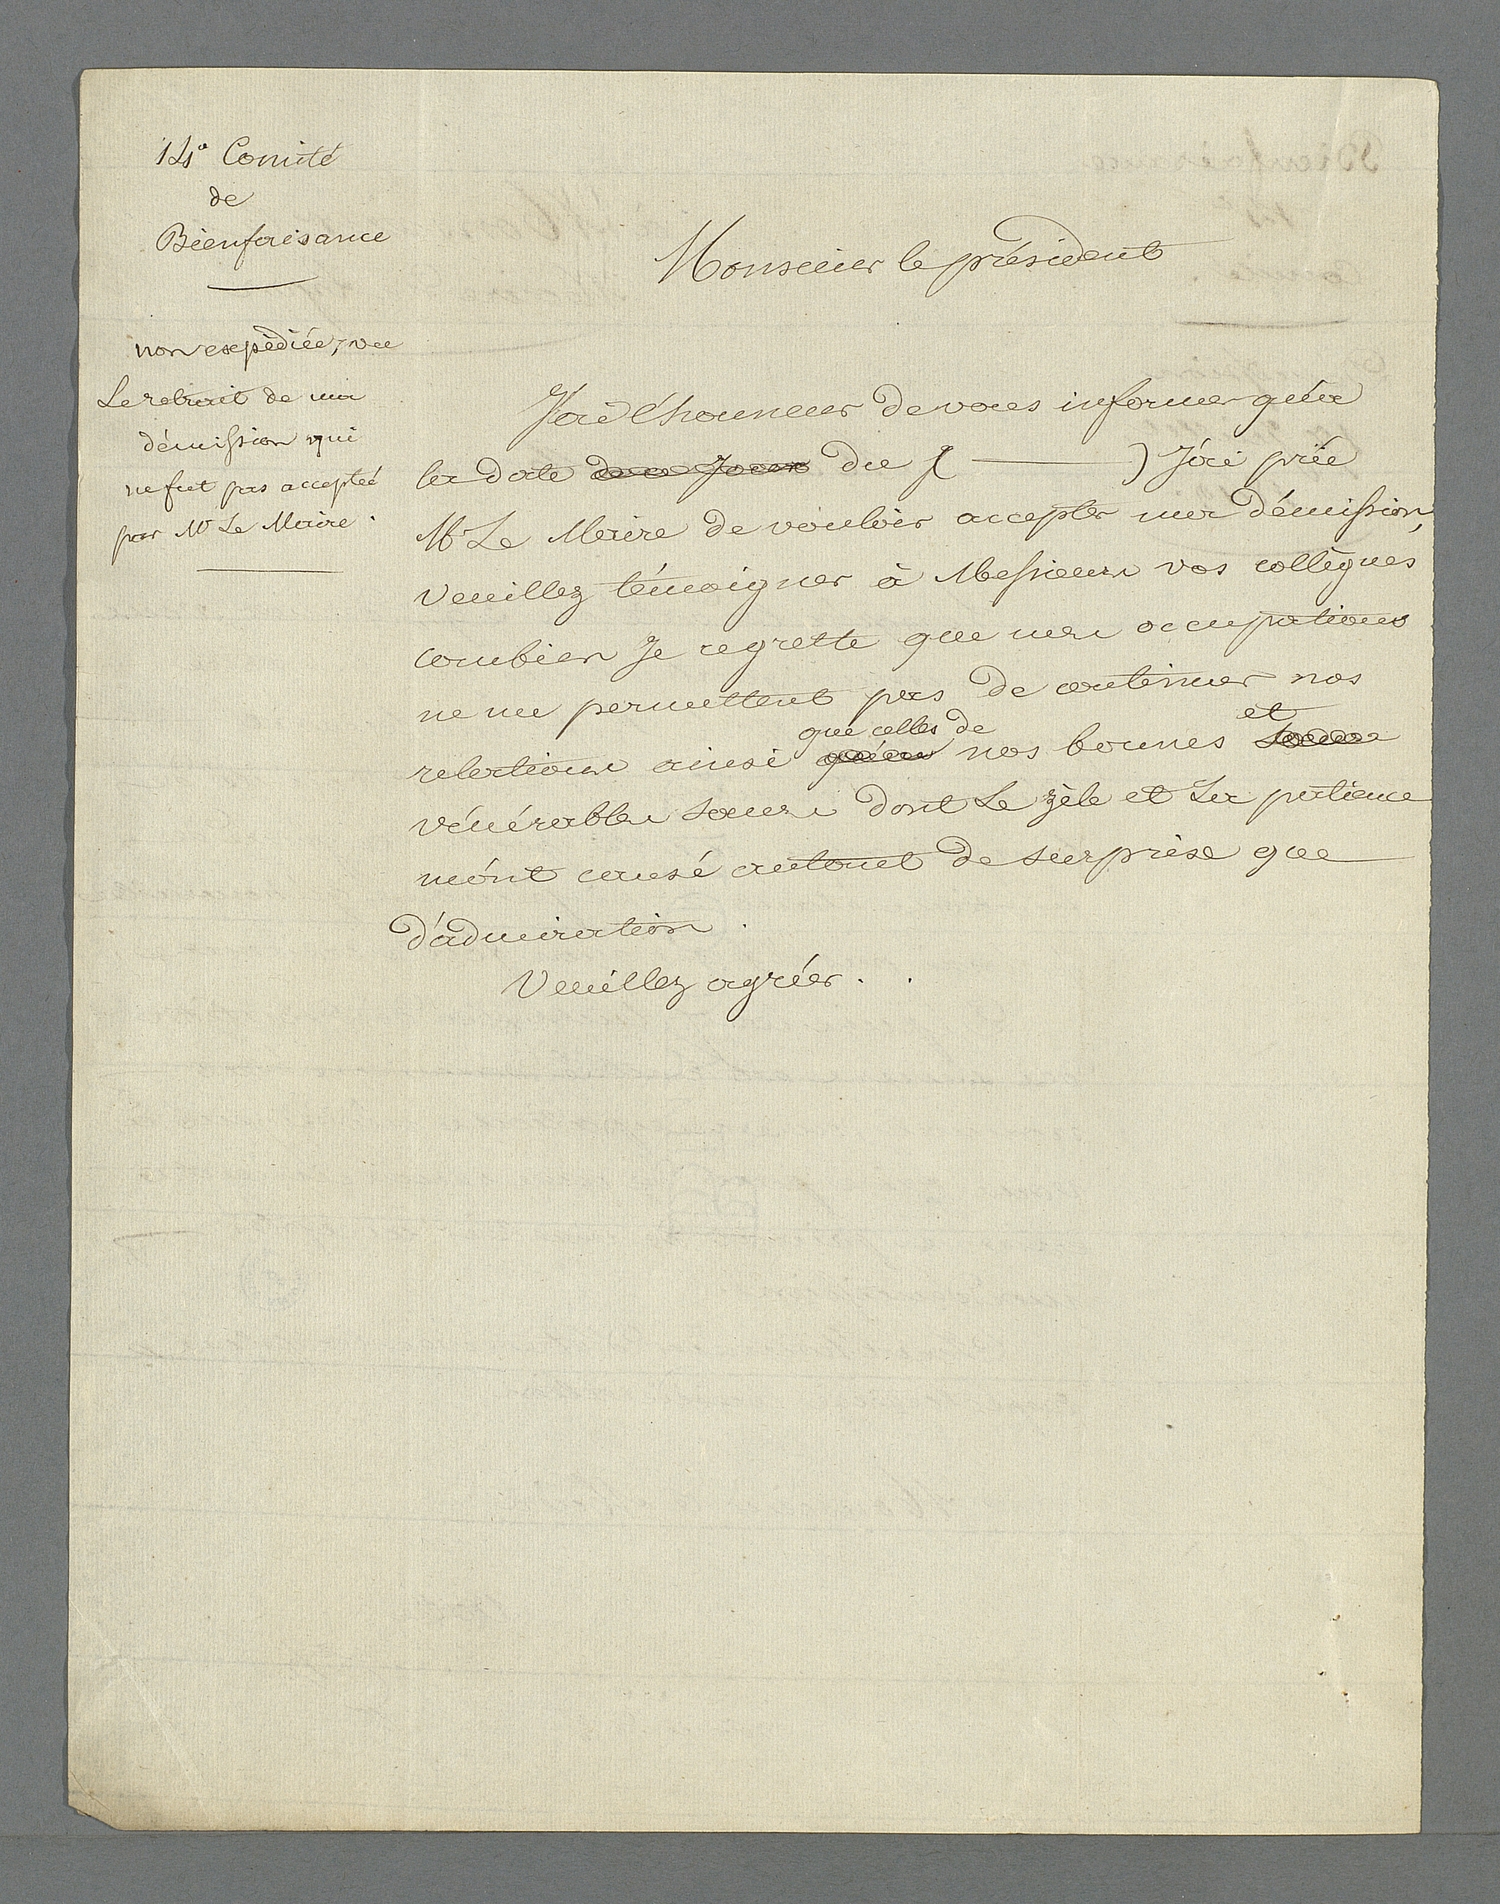 14e Comité
de
Bienfaisance
Monsieur le président
non expédiée, vu
Le retrait de ma
démission qui
ne fut pas acceptée
par Mr Le Maire.
J'ai l'honneur de vous informer qu'à
la date de ce Jour du ( ——— ) J'ai priée
Mr Le Maire de vouloir accepter ma démission,
Veuillez témoigner à Messieurs vos collègues
combien Je regrette que mes occupations
ne me permettent pas de continuer nos
que celles de et
relations ainsi qu'avec nos bonnes
vénérables soeurs dont Le zèle et La patience
m'ont causé autant de surprise que
d'admiration.
Veuillez agréer. .